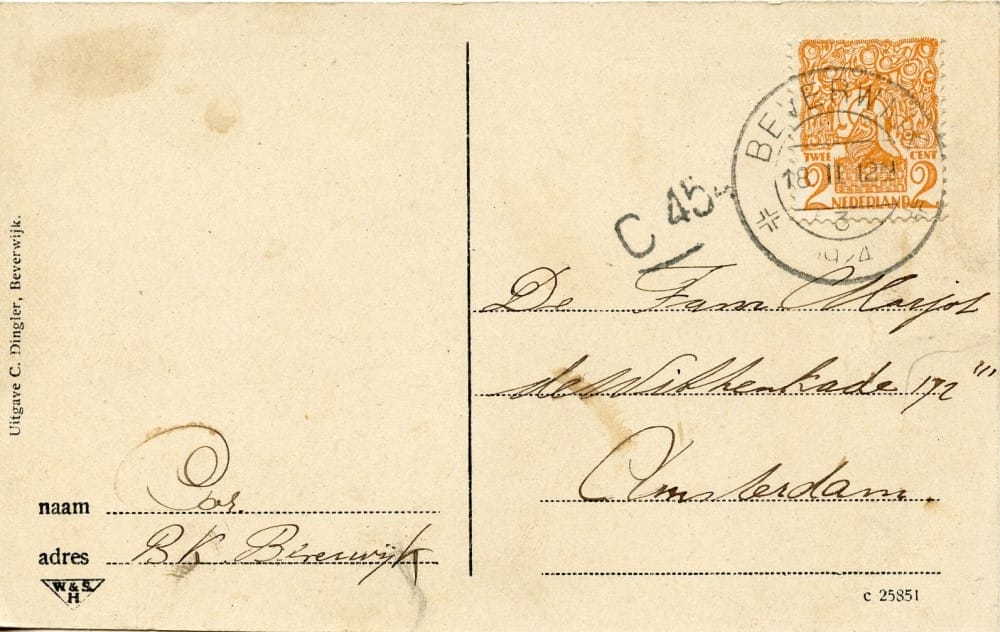 Uitgave C. Dingler, Beverwijk.
naam Cor.
adres B.K. Beverwijk
W & S.
H
BEVERWIJK
18 II 12-1
3
1924
TWEE CENT
2 2
NEDERLAND
C 45
De Fam Marjot
de Witthenkade 172 '''
Amsterdam.
c 25851